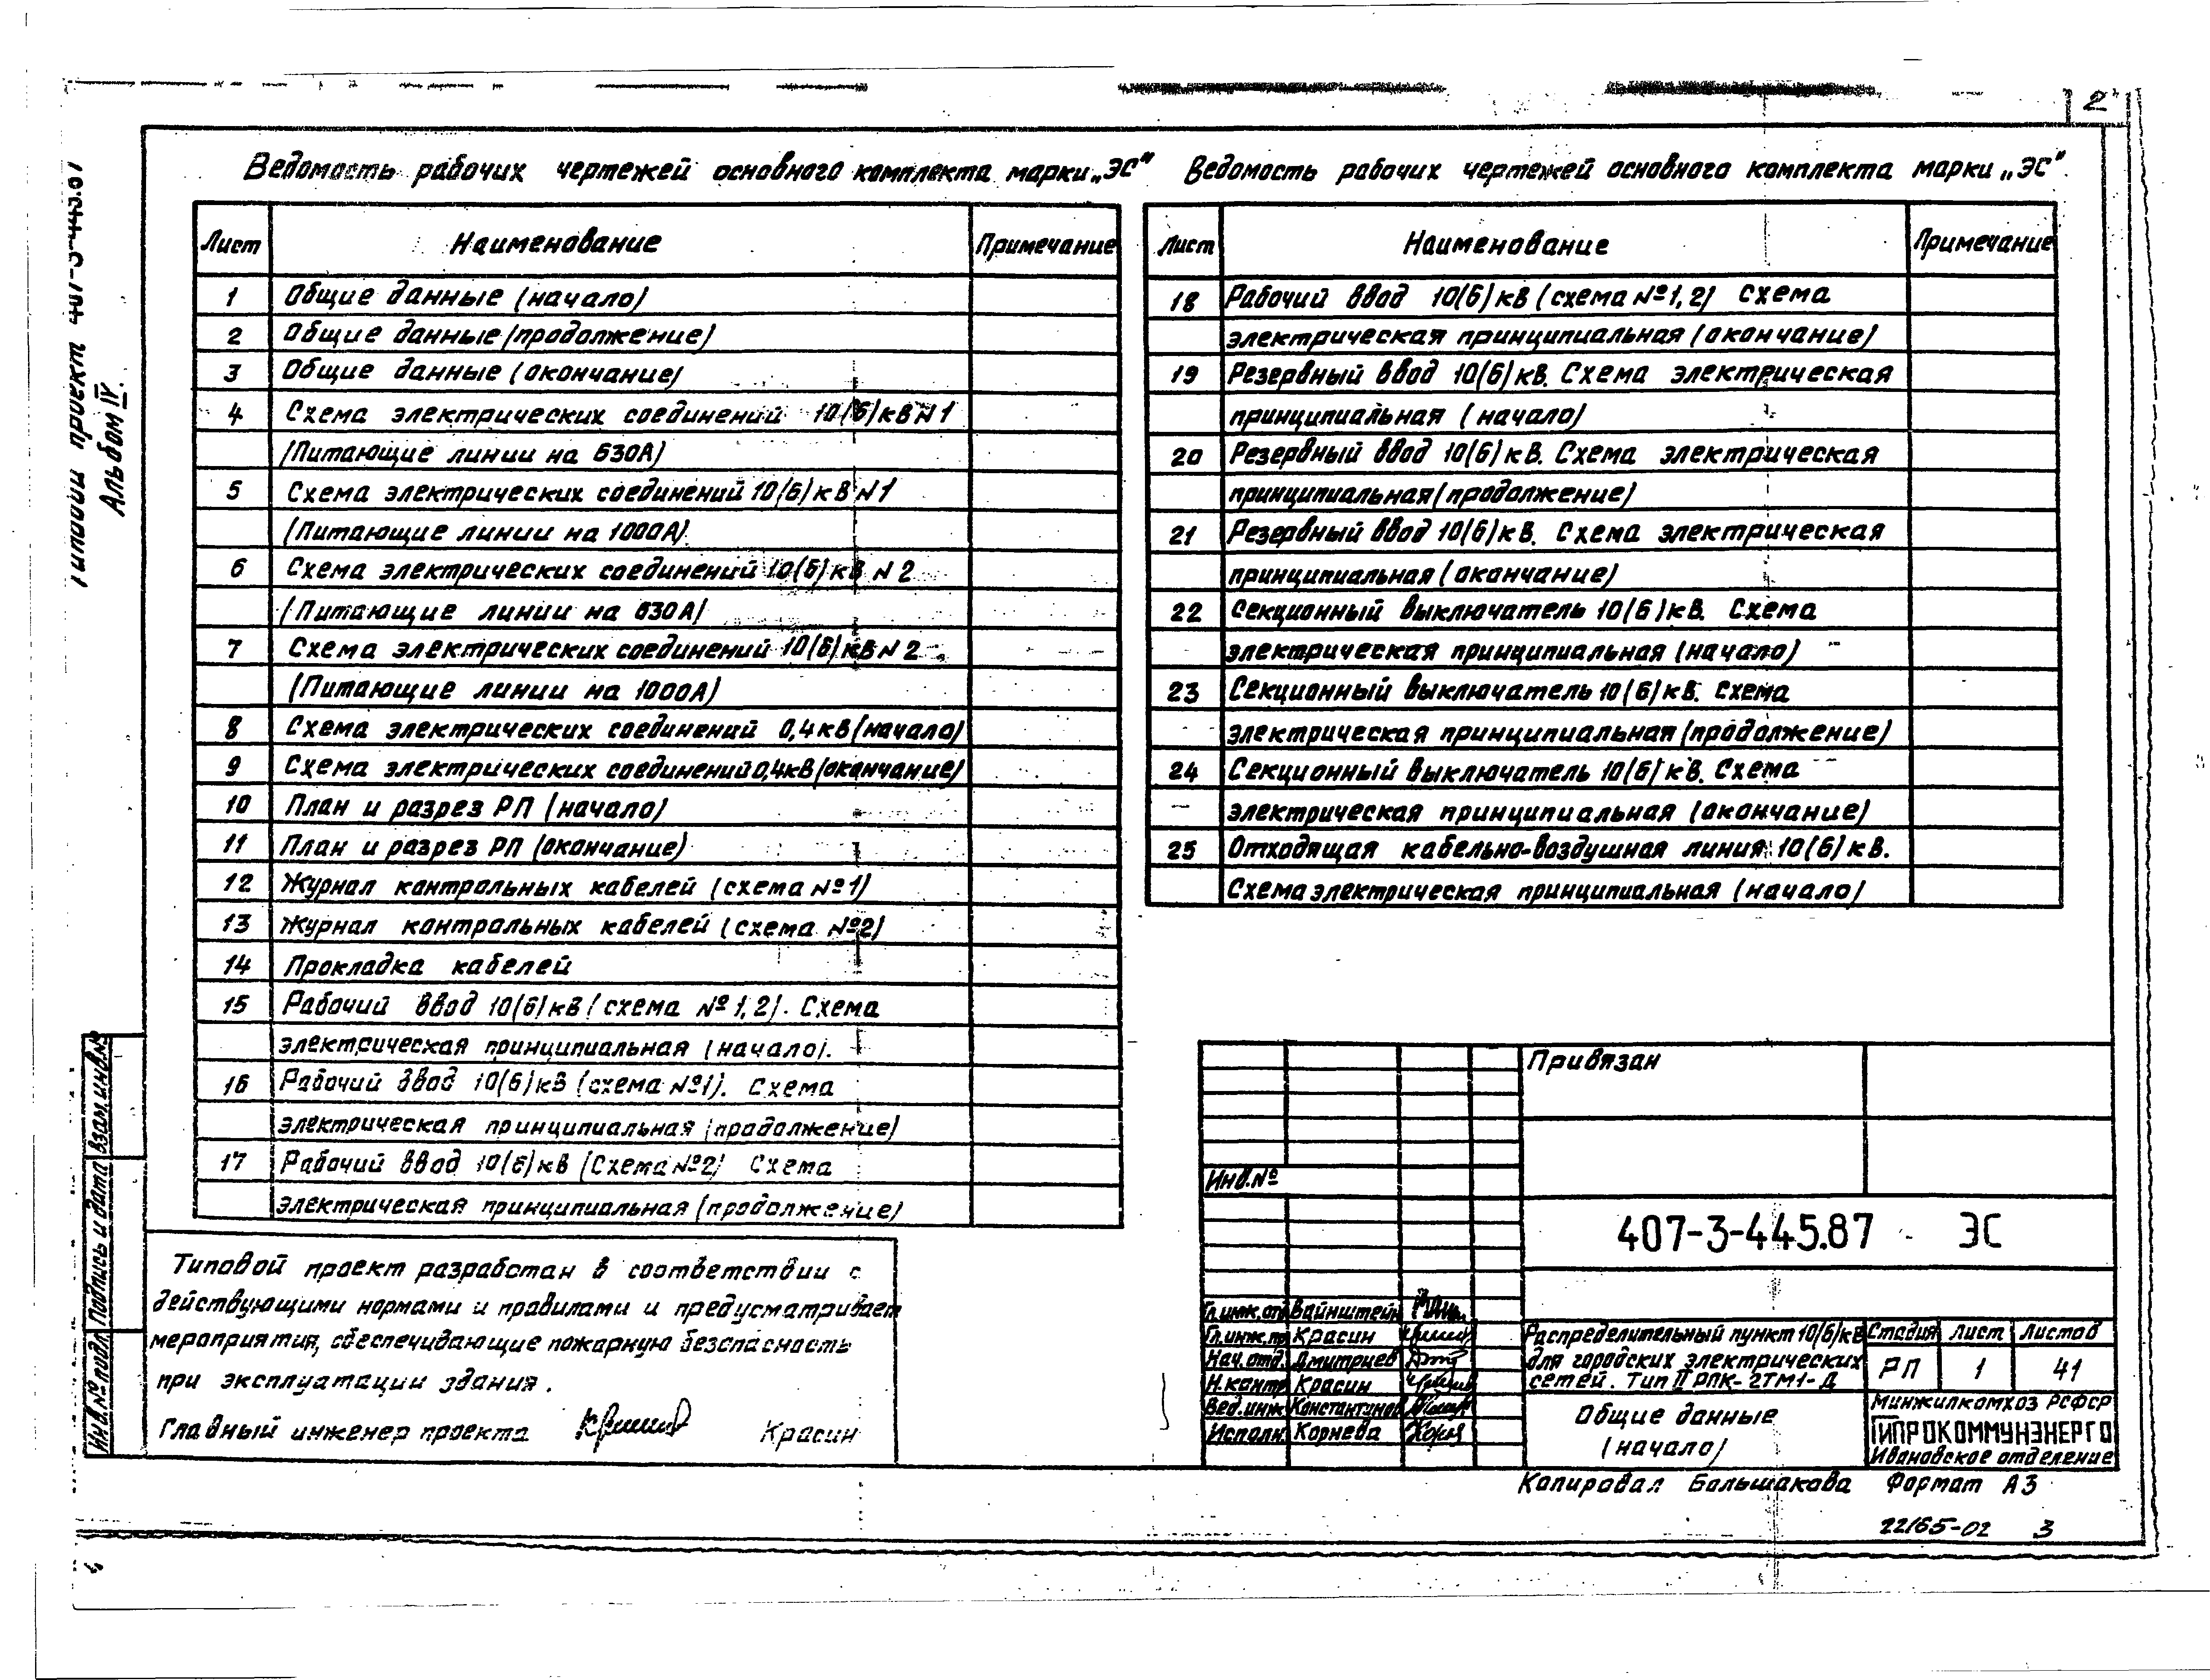 2
Типовой проект 407-3-445.87
Альбом IV.
Ведомость рабочих чертежей основного комплекта марки „ЭС“
Лист Наименование Примечание
1 Общие данные (начало)
2 Общие данные (продолжение)
3 Общие данные (окончание)
4 Схема электрических соединений 10(6)кВ №1
(Питающие линии на 630А)
5 Схема электрических соединений 10(6)кВ №1
(Питающие линии на 1000А).
6 Схема электрических соединений 10(6)кВ №2
(Питающие линии на 630А)
7 Схема электрических соединений 10(6)кВ №2
(Питающие линии на 1000А)
8 Схема электрических соединений 0,4кВ (начало)
9 Схема электрических соединений 0,4кВ (окончание)
10 План и разрез РП (начало)
11 План и разрез РП (окончание)
12 Журнал контрольных кабелей (схема №1)
13 Журнал контрольных кабелей (схема №2)
14 Прокладка кабелей
15 Рабочий ввод 10(6)кВ (схема №1,2). Схема
электрическая принципиальная (начало).
16 Рабочий ввод 10(6)кВ (схема №1). Схема
электрическая принципиальная (продолжение)
17 Рабочий ввод 10(6)кВ (Схема №2) Схема
электрическая принципиальная (продолжение)
Ведомость рабочих чертежей основного комплекта марки „ЭС“.
Лист Наименование Примечание
18 Рабочий ввод 10(6)кВ (схема №1,2) схема
электрическая принципиальная (окончание)
19 Резервный ввод 10(6)кВ. Схема электрическая
принципиальная (начало)
20 Резервный ввод 10(6)кВ. Схема электрическая
принципиальная (продолжение)
21 Резервный ввод 10(6)кВ. Схема электрическая
принципиальная (окончание)
22 Секционный выключатель 10(6)кВ. Схема
электрическая принципиальная (начало)
23 Секционный выключатель 10(6)кВ. Схема
электрическая принципиальная (продолжение)
24 Секционный выключатель 10(6)кВ. Схема
электрическая принципиальная (окончание)
25 Отходящая кабельно-воздушная линия 10(6)кВ.
Схема электрическая принципиальная (начало)
Типовой проект разработан в соответствии с
действующими нормами и правилами и предусматривает
мероприятия, обеспечивающие пожарную безопасность
при эксплуатации здания.
Главный инженер проекта Красин
Инв.№ подл. Подпись и дата Взам.инв.№
Привязан
Инв.№
407-3-445.87 ЭС
Гл.инж.отд Вайнштейн
Гл.инж.пр Красин
Нач.отд. Дмитриев
Н.контр Красин
Вед.инж Константинов
Исполн. Корнева
Распределительный пункт 10(6)кВ
для городских электрических
сетей. Тип II РПК-2ТМ1-Д
Стадия Лист Листов
РП 1 41
Общие данные
(начало)
Минжилкомхоз РСФСР
ГИПРОКОММУНЭНЕРГО
Ивановское отделение
Копировал Большакова Формат А3
22165-02 3